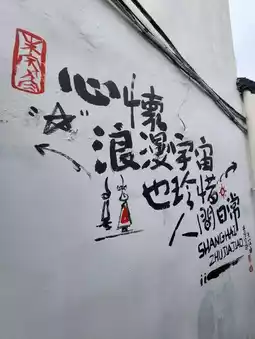 心懷
浪漫宇宙
也珍惜
人間日常
SHANGHAI
ZHUJIAJIAO